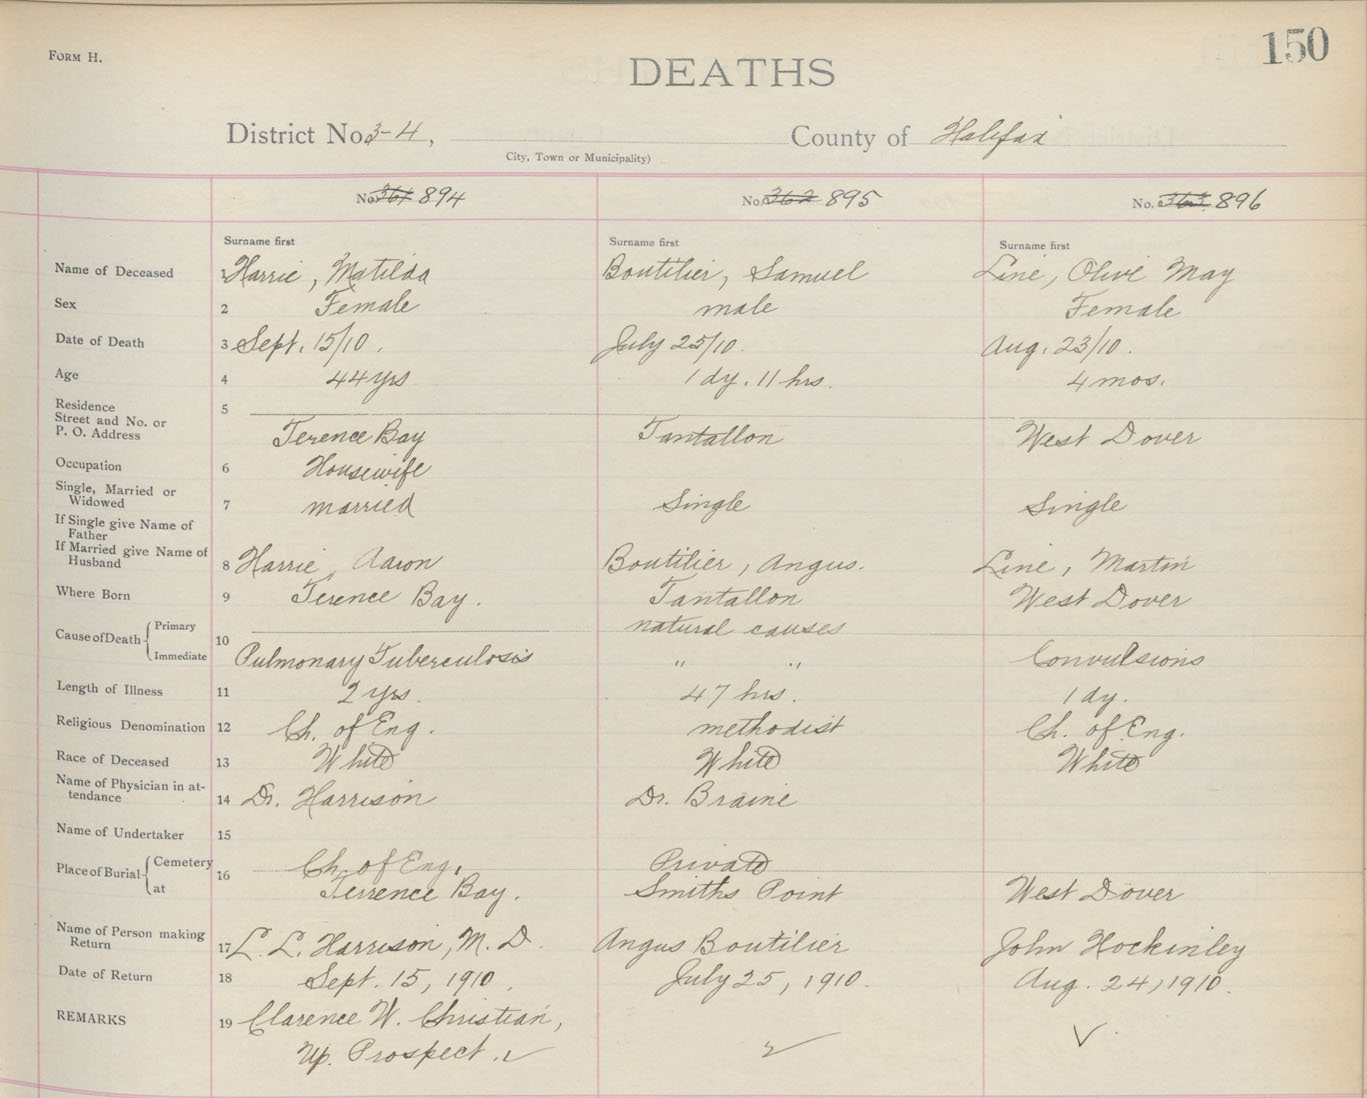 FORM H.
150
DEATHS
District No. 3-4, County of Halifax
City, Town or Municipality)
No. 361 894 No. 362 895 No. 363 896
Surname first Surname first Surname first
Name of Deceased 1 Harrie, Matilda Boutilier, Samuel Line, Olive May
Sex 2 Female male Female
Date of Death 3 Sept. 15/10. July 25/10. Aug. 23/10.
Age 4 44 yrs 1 dy. 11 hrs. 4 mos.
Residence
Street and No. or 5
P. O. Address Terence Bay Tantallon West Dover
Occupation 6 Housewife
Single, Married or
Widowed 7 married Single Single
If Single give Name of
Father
If Married give Name of
Husband 8 Harrie, Aaron Boutilier, Angus. Line, Martin
Where Born 9 Terence Bay. Tantallon West Dover
Cause of Death Primary 10 natural causes
Immediate Pulmonary Tuberculosis " " Convulsions
Length of Illness 11 2 yrs. 47 hrs. 1 dy.
Religious Denomination 12 Ch. of Eng. methodist Ch. of Eng.
Race of Deceased 13 White White White
Name of Physician in at-
tendance 14 Dr. Harrison Dr. Braine
Name of Undertaker 15
Place of Burial Cemetery 16 Ch. of Eng. Private
at Terrence Bay. Smiths Point West Dover
Name of Person making
Return 17 L. L. Harrison, M. D. Angus Boutilier John Hockinley
Date of Return 18 Sept. 15, 1910. July 25, 1910. Aug. 24, 1910.
REMARKS 19 Clarence W. Christian, ✓
Up. Prospect. ✓ ✓